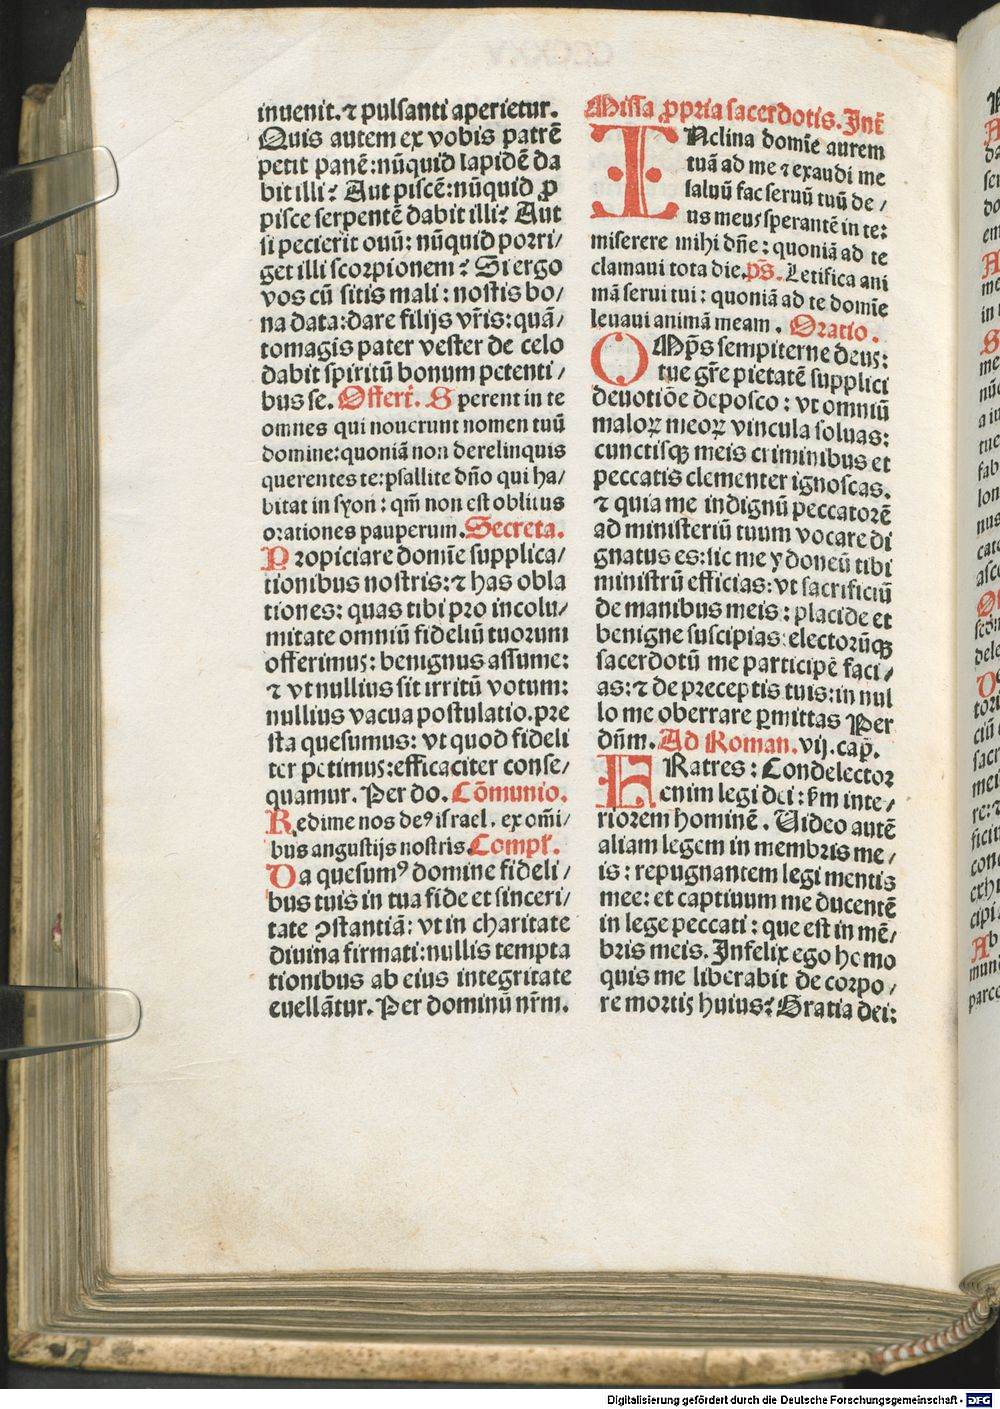 inuenit. ⁊ pulsanti aperietur.
Quis autem ex vobis patrē
petit panē: nūquid lapidē da
bit illi? Aut piscē: nūquid ꝓ
pisce serpentē dabit illi? Aut
si pecierit ouū: nūquid porri/
get illi scorpionem? Si ergo
vos cū sitis mali: nostis bo/
na data: dare filijs vr̄is: quā/
tomagis pater vester de celo
dabit spiritū bonum petenti/
bus se. Offert̄. Sperent in te
omnes qui nouerunt nomen tuū
domine: quoniā non derelinquis
querentes te: psallite dn̄o qui ha/
bitat in syon: qm̄ non est oblitus
orationes pauperum. Secreta.
Propiciare domīe supplica/
tionibus nostris: ⁊ has obla
tiones: quas tibi pro incolu/
mitate omniū fideliū tuorum
offerimus: benignus assume:
⁊ vt nullius sit irritū votum:
nullius vacua postulatio. pre
sta quesumus: vt quod fideli
ter petimus: efficaciter conse/
quamur. Per do. Cōmunio.
Redime nos deꝰ israel. ex om̄i/
bus angustijs nostris. Compl̄.
Da quesumꝰ domine fideli/
bus tuis in tua fide et sinceri/
tate ꝯstantiā: vt in charitate
diuina firmati: nullis tempta
tionibus ab eius integritate
euellātur. Per dominū nr̄m.
Missa ꝓpria sacerdotis. Int̄
INclina domīe aurem
tuā ad me ⁊ exaudi me
saluū fac seruū tuū de/
us meus sperantē in te:
miserere mihi dn̄e: quoniā ad te
clamaui tota die. ps̄. Letifica ani
mā serui tui: quoniā ad te domīe
leuaui animā meam. Oratio.
OMp̄s sempiterne deus:
tue gr̄e pietatē supplici
deuotiōe deposco: vt omniū
maloꝝ meoꝝ vincula soluas:
cunctisqꝫ meis criminibus et
peccatis clementer ignoscas.
⁊ quia me indignū peccatorē
ad ministeriū tuum vocare di
gnatus es: sic me ydoneū tibi
ministrū efficias: vt sacrificiū
de manibus meis: placide et
benigne suscipias: electorūqꝫ
sacerdotū me participē faci/
as: ⁊ de preceptis tuis: in nul
lo me oberrare ꝑmittas Per
dn̄m. Ad Roman. vij. cap̄.
FRatres: Condelector
enim legi dei: s̄m inte/
riorem hominē. Video autē
aliam legem in membris me/
is: repugnantem legi mentis
mee: et captiuum me ducentē
in lege peccati: que est in mē/
bris meis. Infelix ego homo
quis me liberabit de corpo/
re mortis huius? Gratia dei:
Digitalisierung gefördert durch die Deutsche Forschungsgemeinschaft - DFG